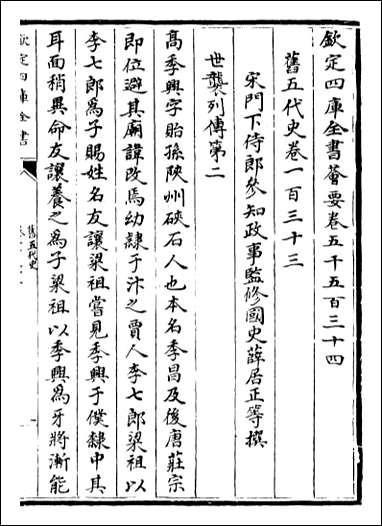 欽定四庫全書薈要卷五千五百三十四
舊五代史卷一百三十三
宋門下侍郎參知政事監修國史薛居正等撰
世襲列傳第二
髙季興字貽孫陜州硤石人也本名季昌及後唐莊宗
即位避其廟諱改焉幼隸于汴之賈人李七郎梁祖以
李七郎為子賜姓名友讓梁祖嘗見季興于僕隸中其
耳面稍異命友讓養之為子梁祖以季興為牙將漸能
欽定四庫全書
舊五代史